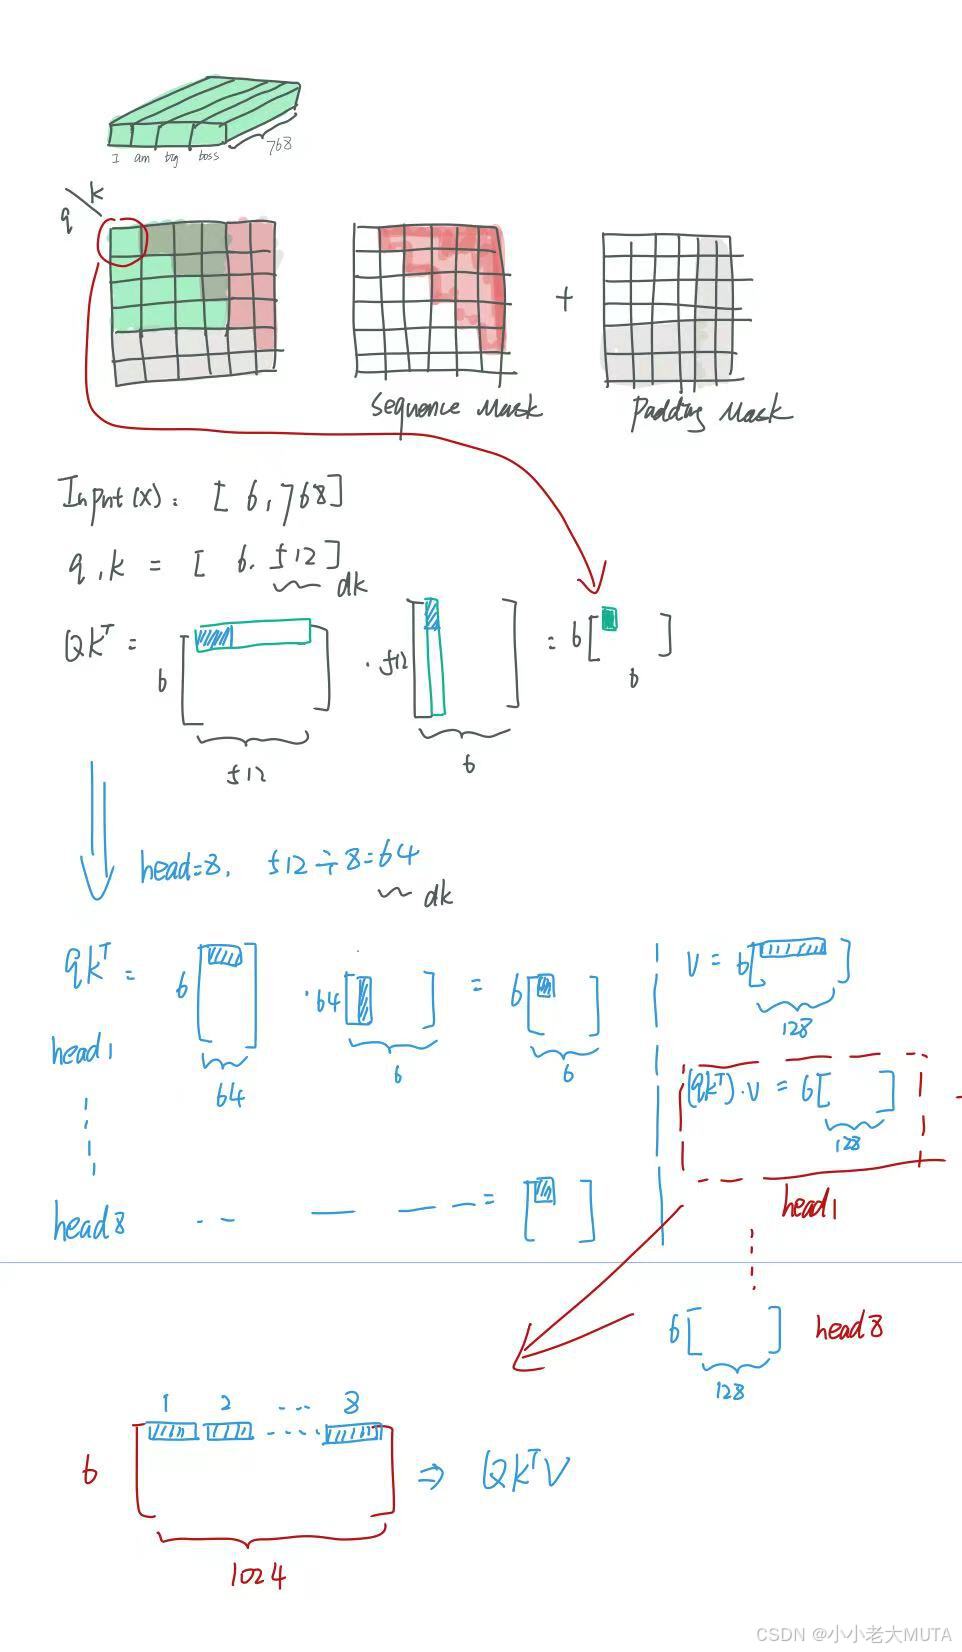 I am big boss 768
q k
Sequence Mask + Padding Mask
Input(x): [ 6, 768]
q, k = [ 6. 512] dk
QKᵀ = 6 [ ] · 512 [ ] = 6 [ ] 6
512 6
head=8, 512÷8=64
dk
qkᵀ = 6 [ ] · 64 [ ] = 6 [ ]
64 6 6
head1
head8 -- — — — = [ ]
V = 6 [ ]
128
(qkᵀ)·v = 6 [ ]
128
head1
6 [ ] head8
128
1 2 ... 8
6 [ ] ⇒ QKᵀV
1024
CSDN @小小老大MUTA